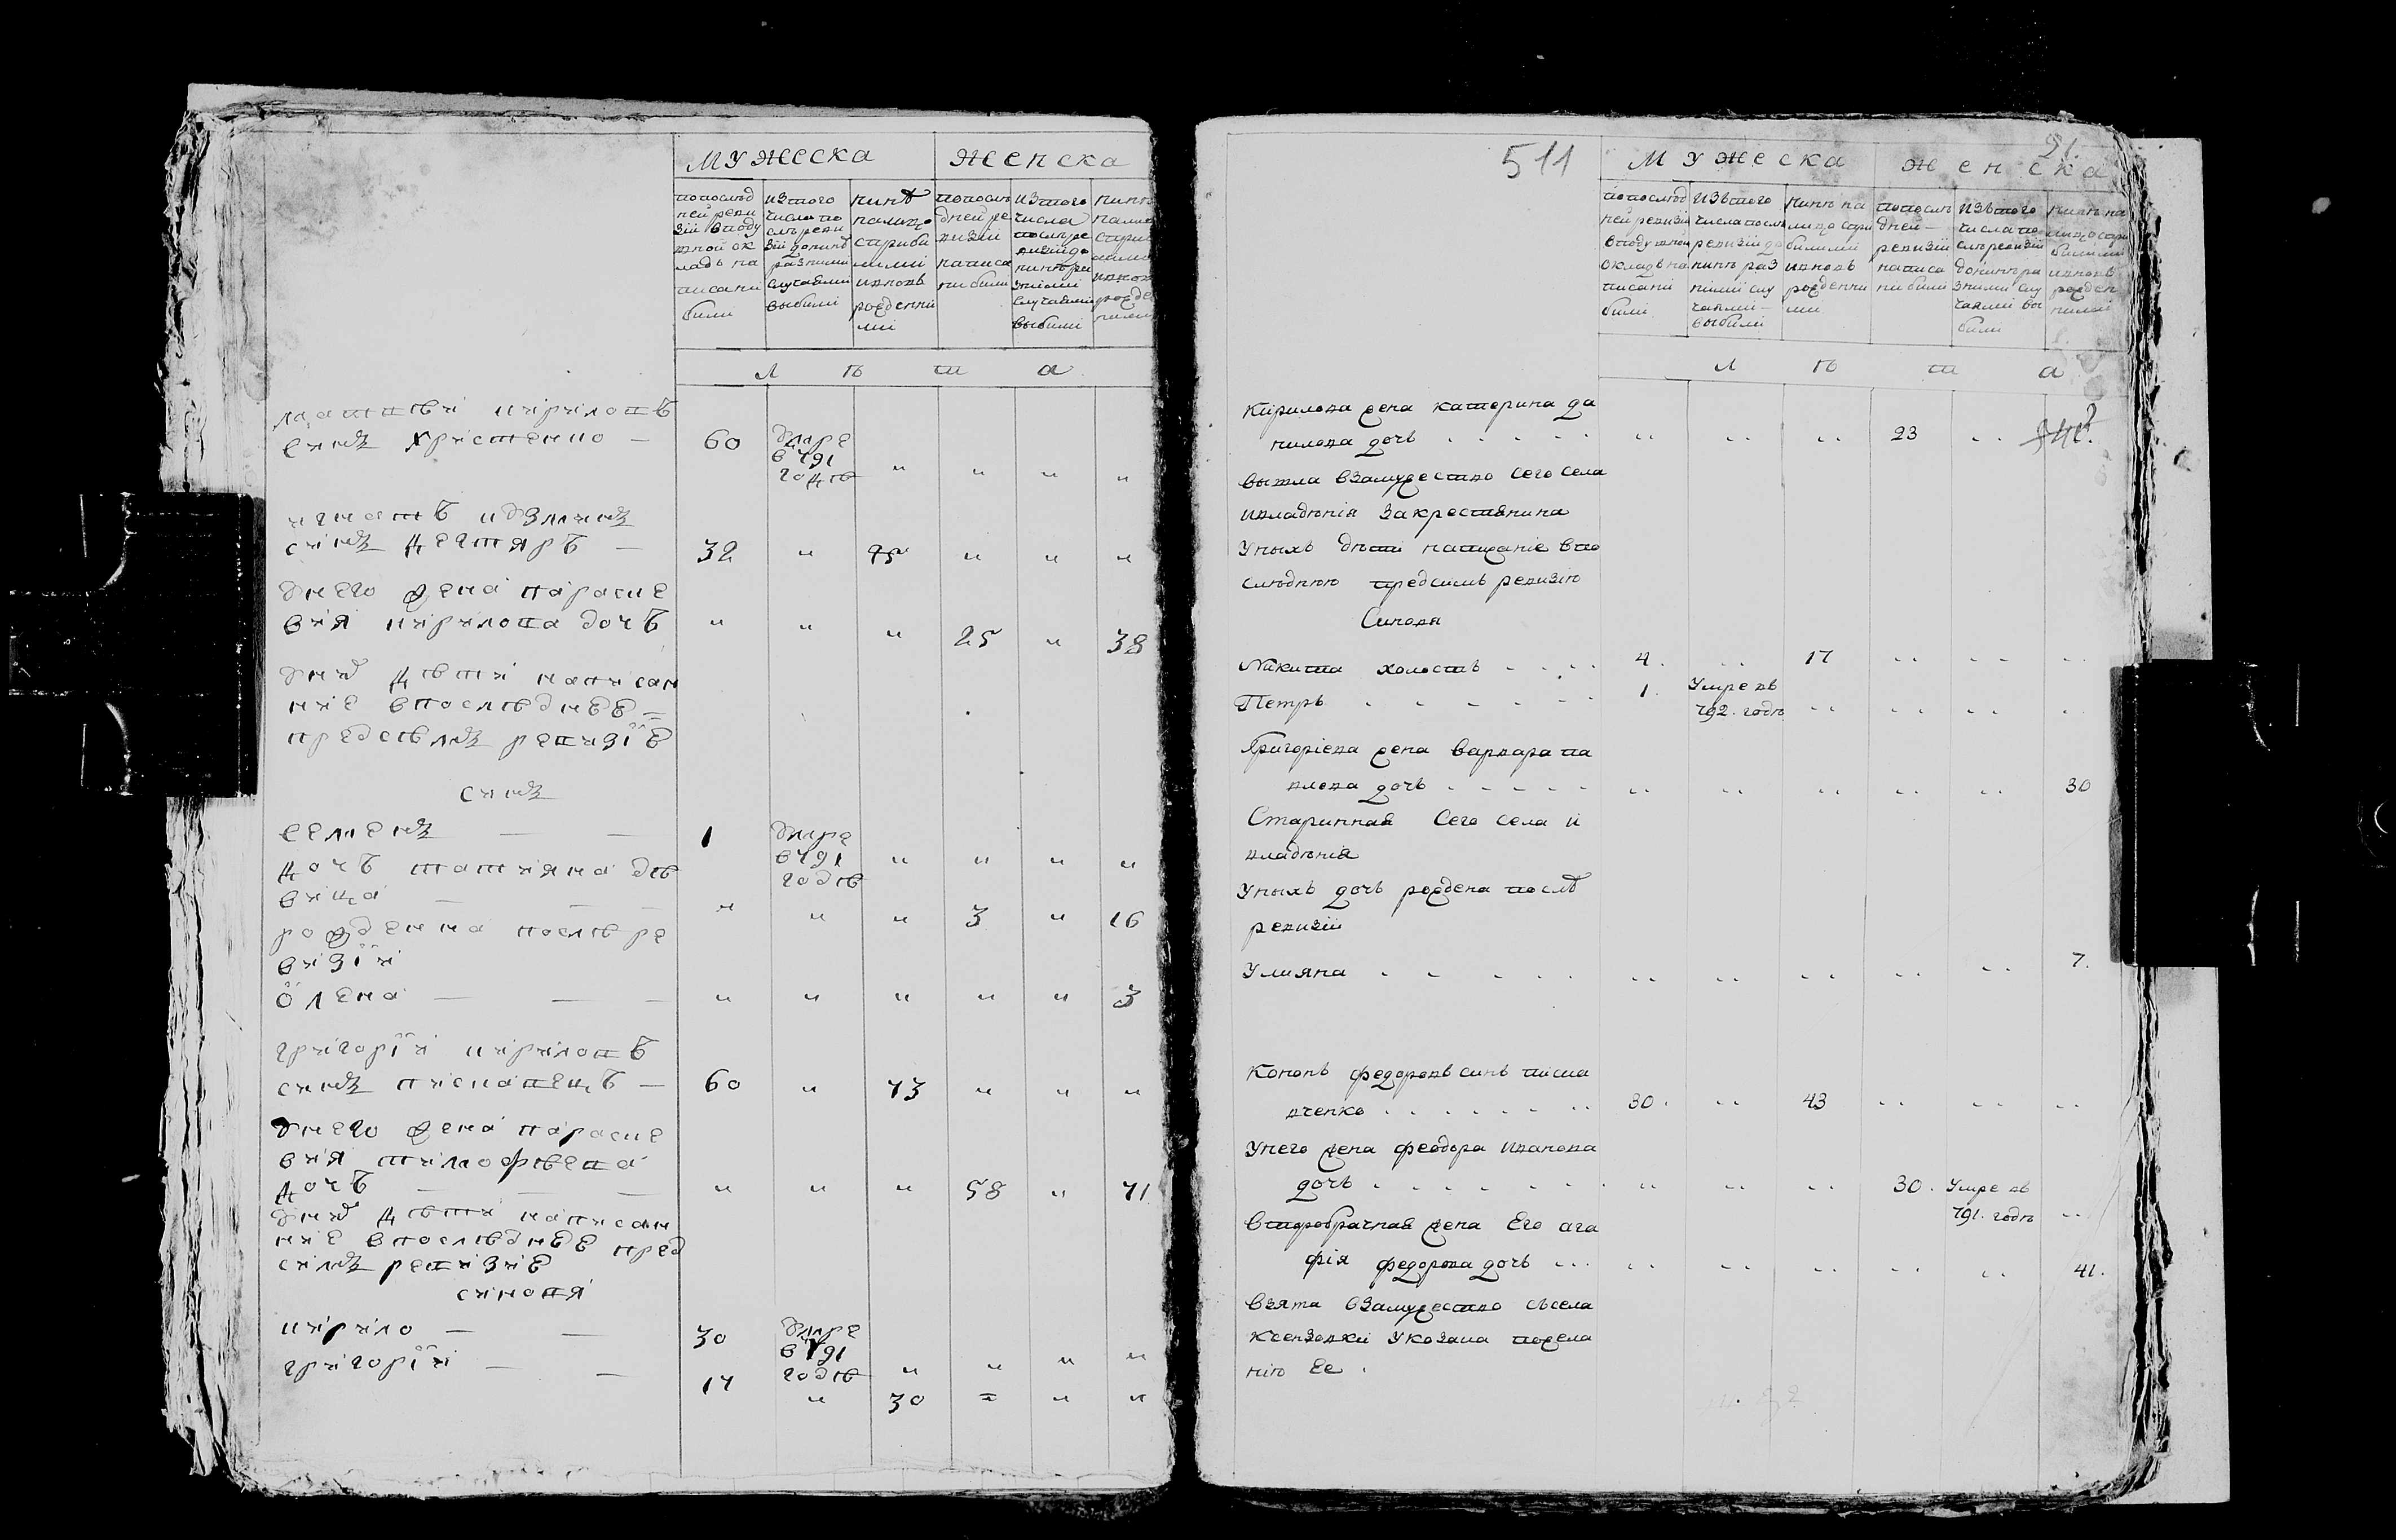 мужеска женска
попослѣд ней реви зіи вподу шной ок ладъ на писани били
изтого числа по слѣ реви зіи донинѣ разними случаями выбили
нинѣ налицо сприбы лими ивновь рожденни ми
попослѣ дней ре визіи написа ни били
изтого числа послѣ ре визіи до нинѣ ра зними случаями выбили
л ѣ т а
матвѣй кириловъ
синъ христенко — 60 умре
в 791
годѣ " " " "
игнатъ кузминъ
синъ дегтяръ — 32 " 45 " " "
унего жена параске
вия кирилова дочъ " " " 25 " 38
уних дѣти написан
ние впослѣднюю
предсѣмъ ревизію
синъ
семенъ — — 1 умре
в 791
годѣ " " " "
дочъ татияна дѣ
вица — — — " " " 3 " 16
рожденна послѣ ре
визіи
олена — — — " " " " " 3
григорій кириловъ
синъ писмавецъ — 60 " 73 " " "
унего жена параске
вия тимофѣева
дочъ — — — " " " 58 " 71
уних дѣти написан
ние впослѣднюю пред
симъ ревизию
синовя
кирило — — 30 умре
в 791
годѣ " " " "
григорій — — 17 " 30 = " "
511 91.
мужеска женска
попослѣд ней ревизіи вподушной окладъ на писани били
изътого числа послѣ ревизіи до нинѣ раз ними слу чаями — выбили
нинѣ на лицо спри билими ивновь рожденни ми
попослѣ дней — ревизіи написа ни били
изътого числа по слѣ ревизіи донинѣ ра зними слу чаями вы били
нинѣ на лицо спри билими ивновь рожден ними
л ѣ т а
кирилова жена катерина да
нилова дочь . . . . . .. .. .. 23 ..
вышла взамужество сего села
ивладѣнія закрестянина
уныхъ дѣти написаніе впо
слѣднюю предсимъ ревизію
Синовя
Никита холостъ - . . . 4. .. 17 .. .. ..
Петръ . . . . . . 1. Умре въ
792. годѣ .. .. .. ..
Григоріева жена варвара па
влова дочь . . . . . .. .. .. .. .. 30
Старинная Сего села и
владѣнія
Уныхъ дочь рождена послѣ
ревизіи
Улияна . . . . . .. .. .. .. .. 7.
Кононъ федоровъ синъ писма
вченко . . . . . . .. 30. .. 43 .. .. ..
Унего жена феодора иванова
дочь . . . . . . . .. .. .. 30. Умре въ
791. годѣ ..
Второбрачная жена Его ага
фія федорова дочь ... .. .. .. .. .. 41.
Взята взамужество съсела
Ксензовки Указана пожела
нію Ее .